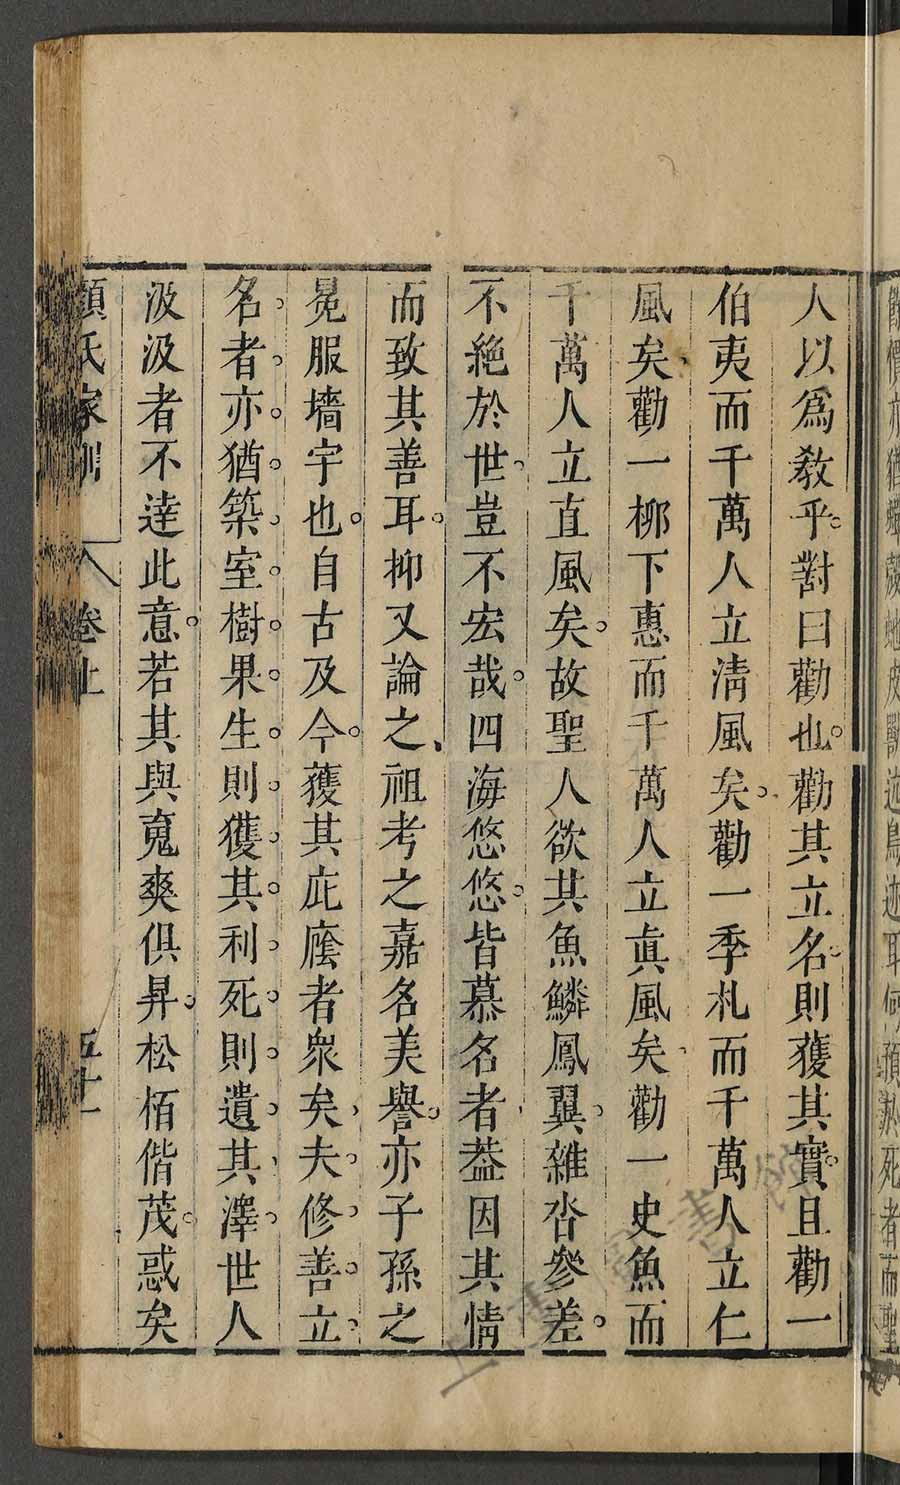 餙慣亦猶蟬殼蛇皮獸迒鳥迹耳何預於死者而聖
人以爲教乎對曰勸也勸其立名則獲其實且勸一
伯夷而千萬人立清風矣勸一季札而千萬人立仁
風矣勸一柳下惠而千萬人立眞風矣勸一史魚而
千萬人立直風矣故聖人欲其魚鱗鳳翼雜沓參差
不絕於世豈不宏哉四海悠悠皆慕名者葢因其情
而致其善耳抑又論之祖考之嘉名美譽亦子孫之
冕服墻宇也自古及今獲其庇廕者衆矣夫修善立
名者亦猶築室樹果生則獲其利死則遺其澤世人
汲汲者不達此意若其與䰟爽俱昇松栢偕茂惑矣
顏氏家訓 卷上 五十一